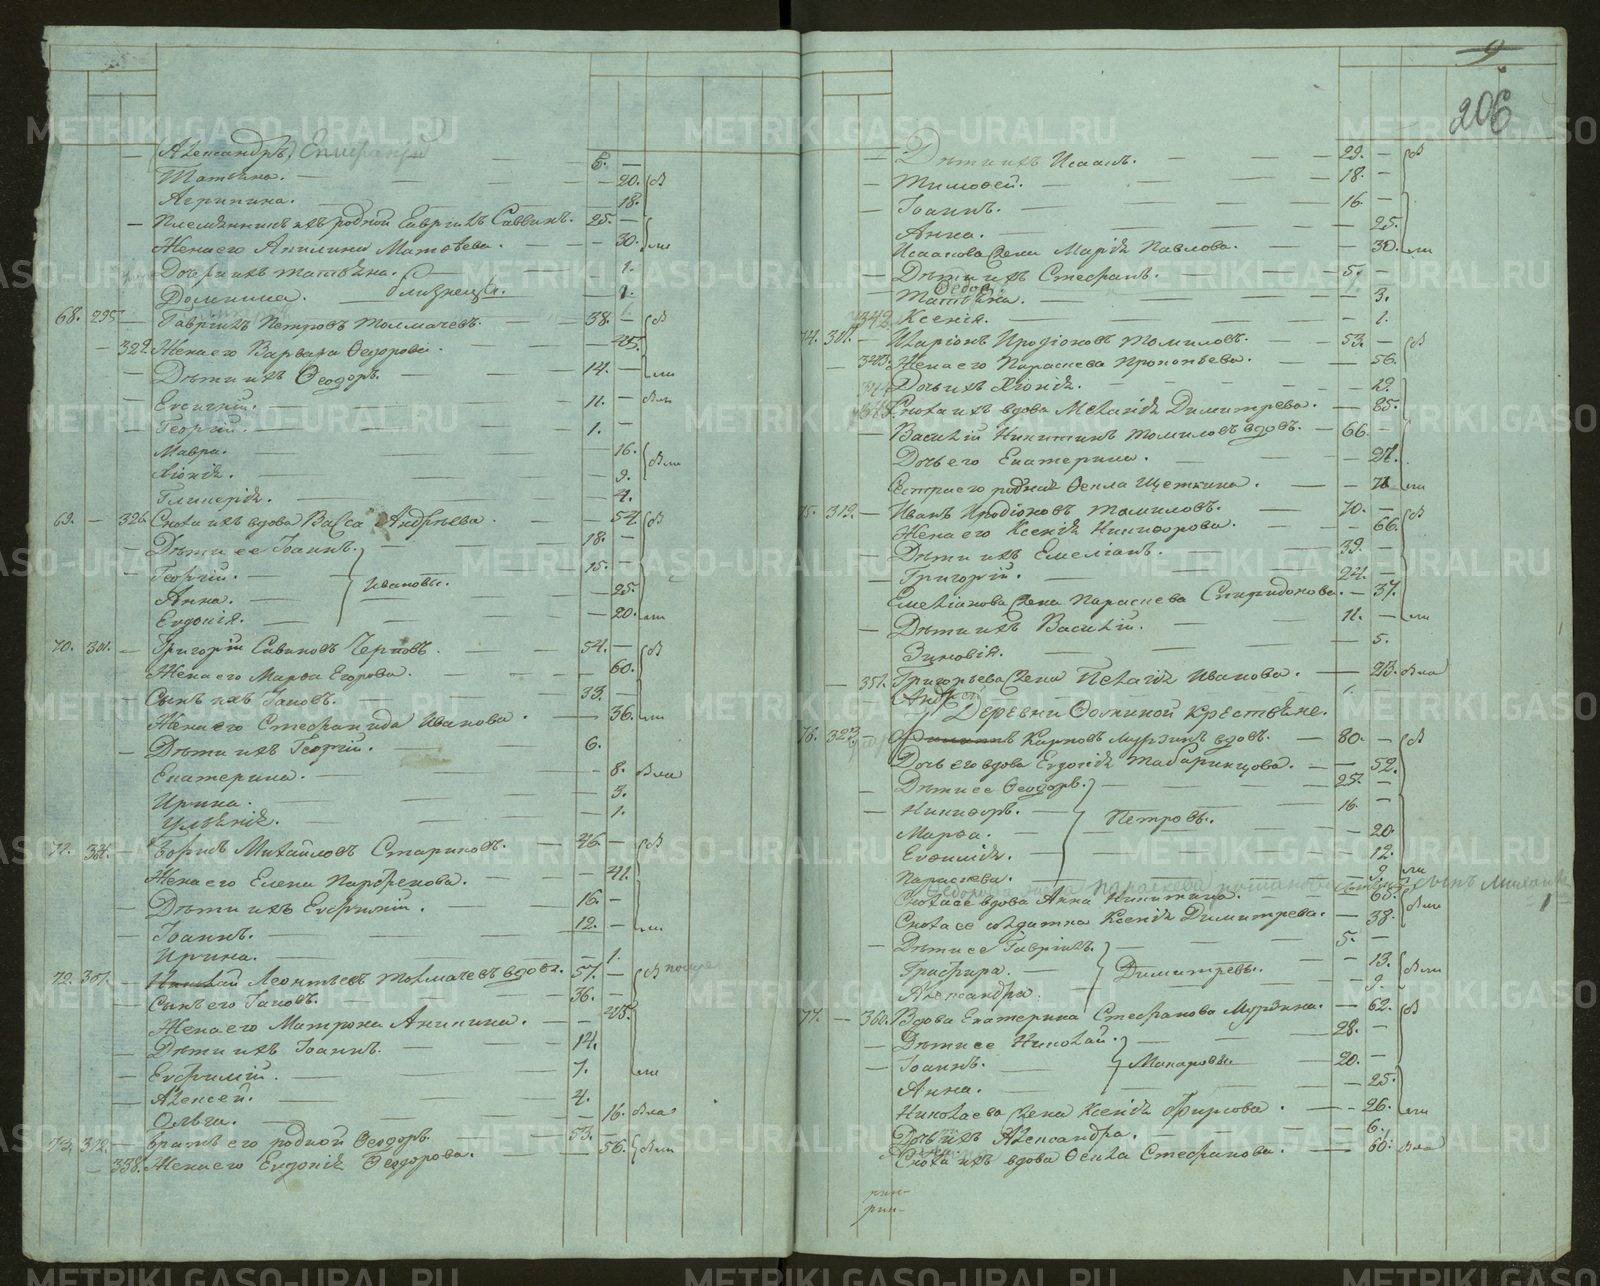 Александръ
Татьяна. 20.
Агрипина. 18.
Племянникъ ихъ родной Гавріилъ Саввинъ. 25.
Жена его Акилина Матвѣева. 30.
Дочери ихъ Татьяна. 1.
Домника. близнецы. 1.
68. 295. Гавріилъ Петровъ Толмачевъ. 38.
Жена его Варвара Ѳеодорова. 45.
Дѣти ихъ Ѳеодоръ. 14.
Евсигній. 11.
Георгій. 1.
Мавра. 16.
Хіонія. 9.
Гликерія. 4.
69. 326. Сноха ихъ вдова Васса Андрѣева. 54.
Дѣти ее Іоаннъ. 18.
Георгій. 15. Ивановы.
Анна. 25.
Евдокія. 20.
70. 301. Григорій Савиновъ Черновъ. 54.
Жена его Марѳа Егорова. 60.
Сынъ ихъ Іаковъ. 33.
Жена его Стефанида Иванова. 36.
Дѣти ихъ Георгій. 6.
Екатерина. 8.
Ирина. 3.
Ульянія. 1.
71. Борисъ Михайловъ Стариковъ. 46.
Жена его Елена Парфенова. 41.
Дѣти ихъ Евфимій. 16.
Іоаннъ. 12.
Ирина. 1.
72. 307. Николай Леонтьевъ Толмачевъ вдовъ. 57.
Сынъ его Іаковъ. 36.
Жена его Матрона Аникина. 45.
Дѣти ихъ Іоаннъ. 14.
Евфимій. 7.
Алексей. 4.
Ольга. 16.
73. 312. Братъ его родной Ѳеодоръ. 53.
338. Жена его Евдокія Ѳеодорова. 56.
9.
206
Дѣти ихъ Исаакъ. 29.
Тимоѳей. 18.
Іоаннъ. 16.
Анна. 25.
Исаакова жена Марія Павлова. 30.
Дѣти ихъ Стефанъ. 5.
Татьяна. 3.
342 Ксенія. 1.
74. 301. Иларіонъ Иродіоновъ Томиловъ. 53.
Жена его Параскева Прокопьева. 56.
Дочь ихъ Хіонія. 19.
Сноха ихъ вдова Меланія Димитрева. 25.
Василій Никитинъ Томиловъ вдовъ. 66.
Дочь его Екатерина. 27.
Сестра его родная Ѳекла Щеткина. 71
75. 312. Иванъ Иродіоновъ Томиловъ. 70.
Жена его Ксенія Никифорова. 66.
Дѣти ихъ Емеліанъ. 39.
Григорій. 24.
Емеліанова жена Параскева Спиридонова. 37.
Дѣти ихъ Василій. 11.
Зиновія. 5.
351. Григорьева жена Пелагія Иванова. 23.
Андрей
Деревни Ѳоминой Крестьяне.
76. 323. Карповъ Мурзинъ вдовъ. 80.
Дочь его вдова Евдокія Табаринцова. 52.
Дѣти ее Ѳеодоръ. 25.
Никифоръ. 16. Петровы.
Марѳа. 20.
Евфимія. 12.
Параскева. 9.
Сноха ее вдова Анна Никитина. 60.
Сноха ее солдатка Ксенія Димитрева. 38.
Дѣти ее Гавріилъ. 5.
Глафира. 13. Димитревы.
Александра. 9.
77. 360. Вдова Екатерина Стефанова Мурзина. 62.
Дѣти ее Николай. 28.
Іоаннъ. 20. Макаровы
Анна. 25.
Николаева жена Ксенія Фирсова. 26.
Дочь ихъ Александра. 6.
Сноха ихъ вдова Ѳекла Стефанова. 60.